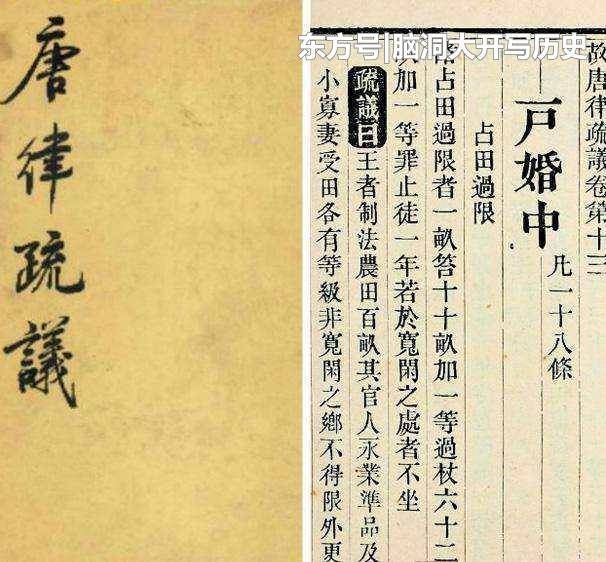 唐律疏議
东方号|脑洞大开写历史
故唐律疏議卷第十三
凡一十八條
戸婚中
占田過限
占田過限者一畝笞十十畝加一等過杖六十二
加一等罪止徒一年若於寬閑之處者不坐
疏議曰王者制法農田百畝其官人永業準品及
小寡妻受田各有等級非寬閑之鄉不得限外更